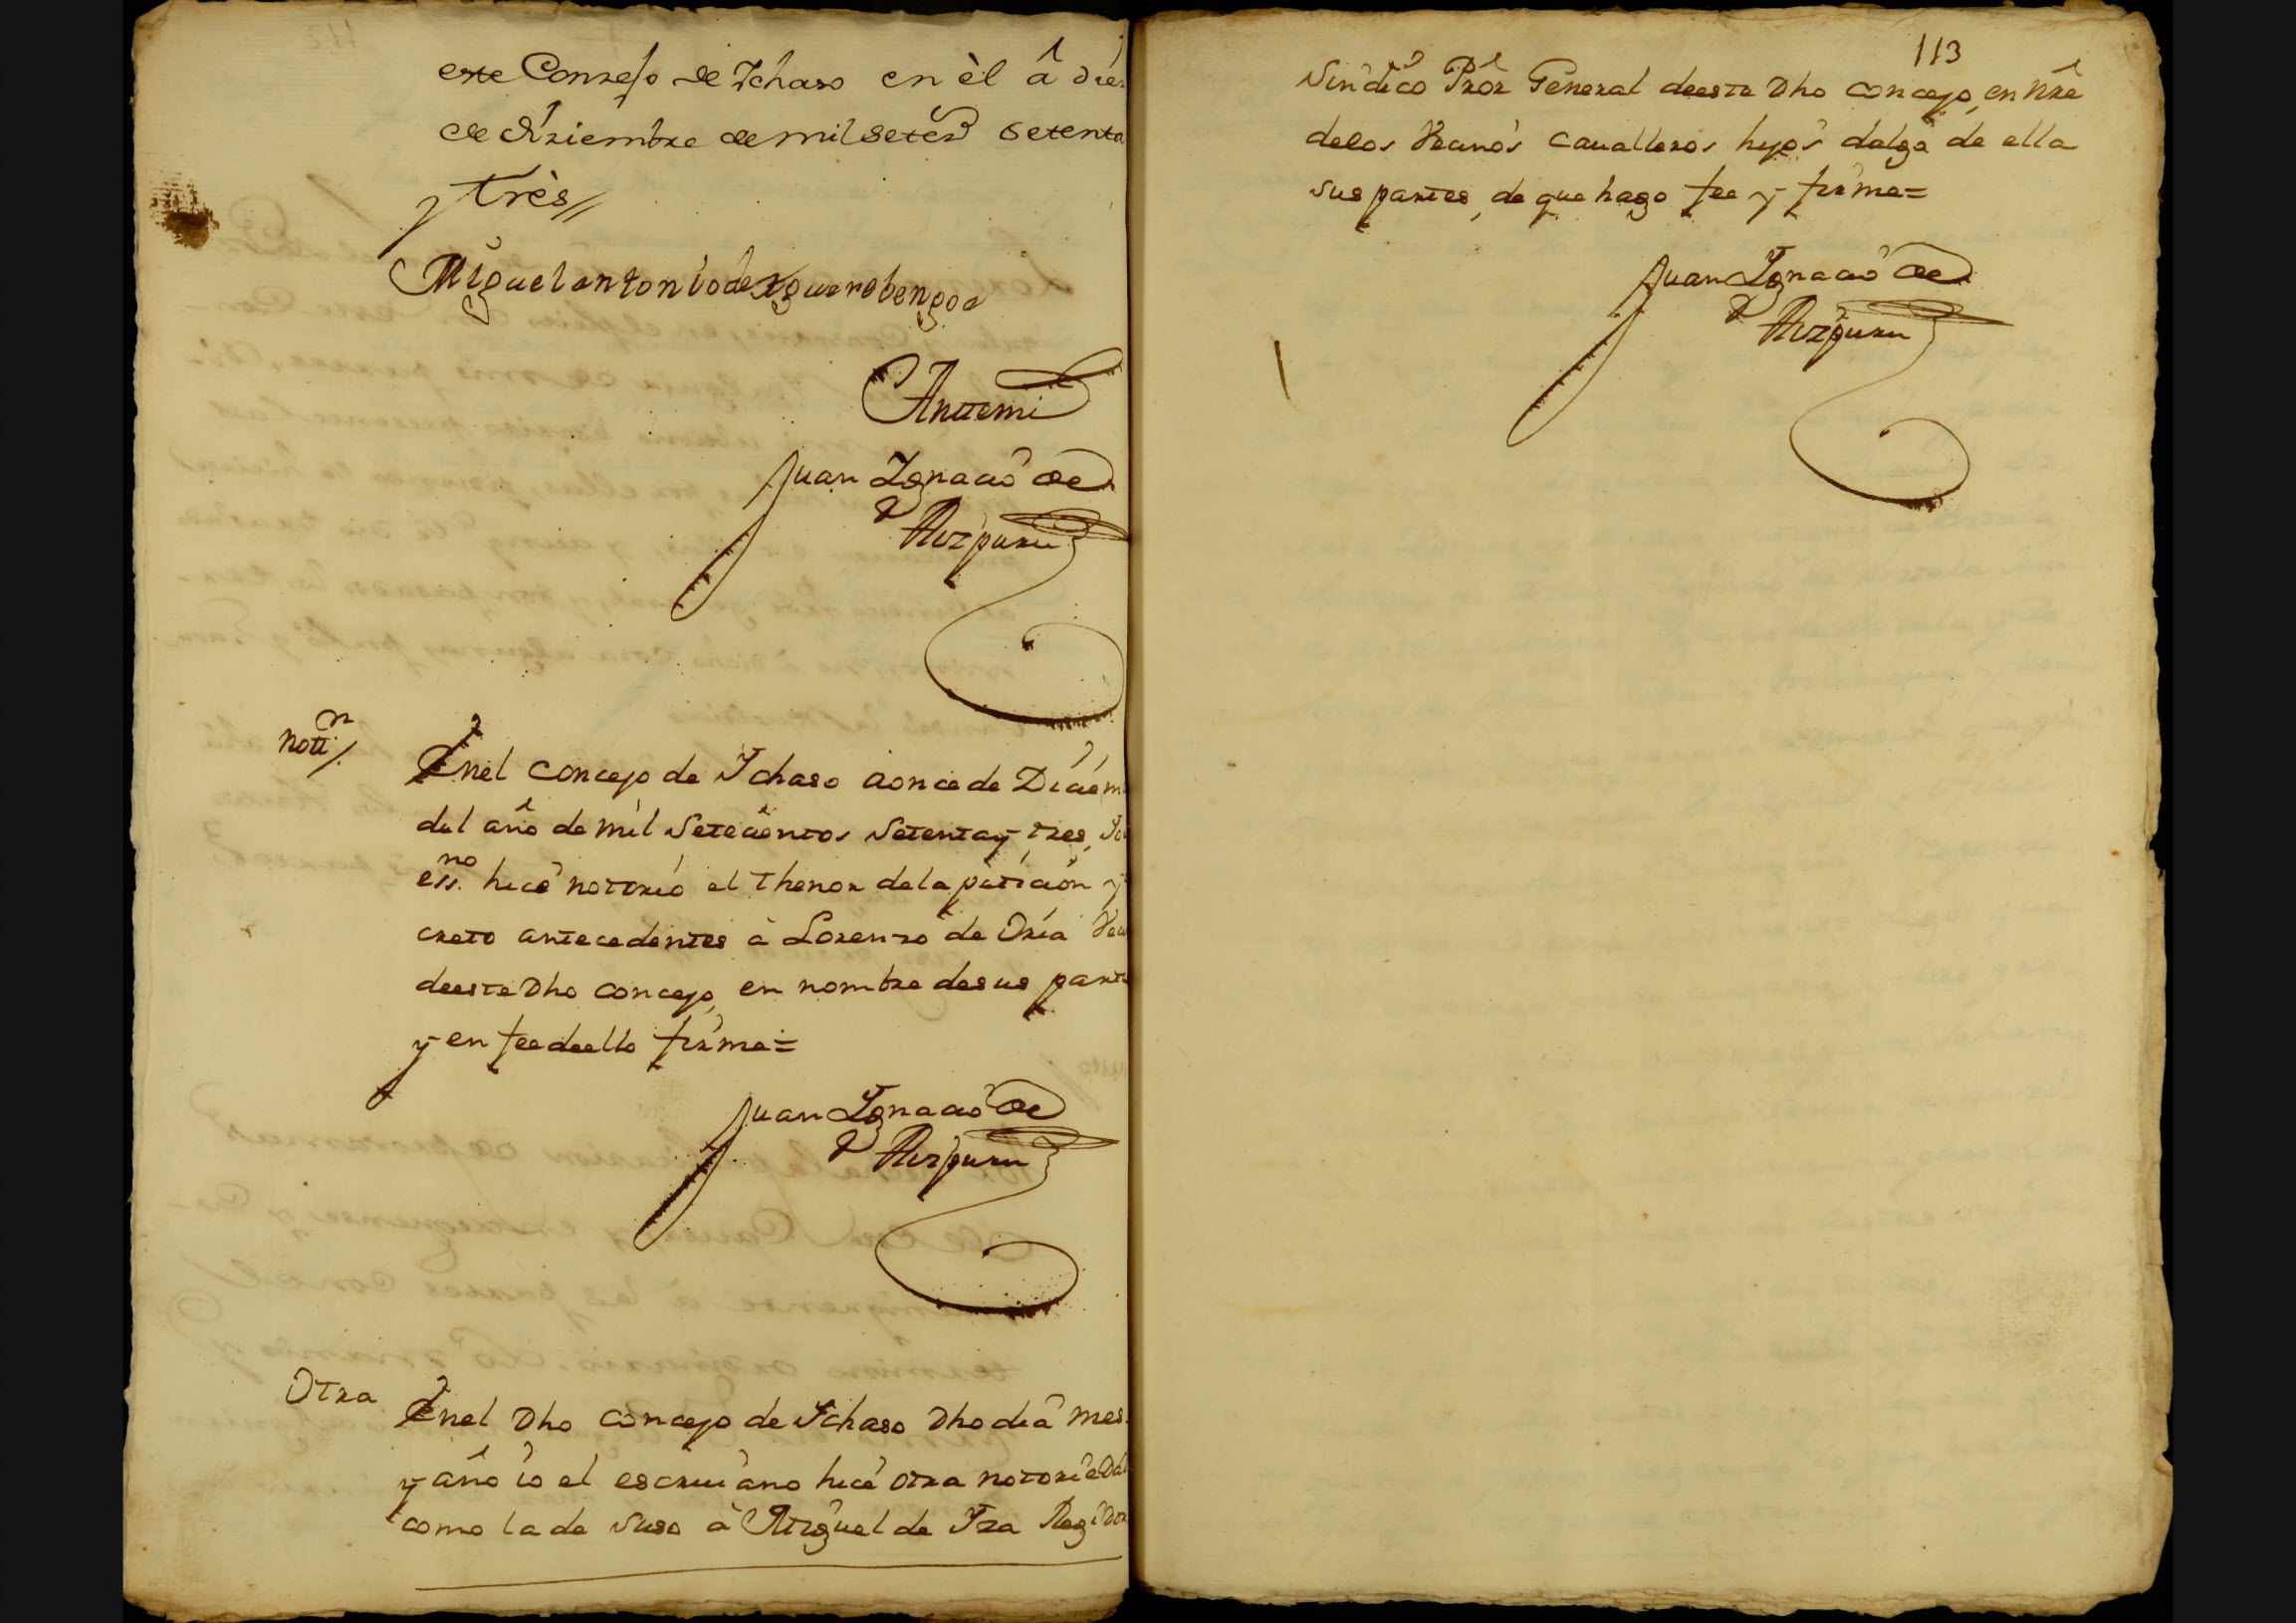 este Consejo de Ychaso en èl â diez
de Diziembre de mil setezs setenta
y tres//
Miguel antonio de Yguerobengoa
Antemi
Juan Ignacio de
Aizpuru
nottn/.
Enel concejo de Ychaso aonce de Diciem
del año de mil Setecientos Setentay tres, Yo
essno. hice notorio el thenor dela peticion y
creto antecedentes à Lorenzo de Oria
deeste Dho concejo, en nombre desus parte
y en fee deello firme=
Juan Ignacio de
Aizpuru
Otra
Enel Dho concejo de Ychaso Dho dia mes
y año io el escriuano hice otra notoriedad
como la de suso à Miguel de Yza Regidor
113
Sindico Pror General deeste Dho concejo, en nre
delos Vecanos caualleros hijos dalgo de ella
sus partes, de que hago fee y firme=
Juan Ignacio de
Aizpuru